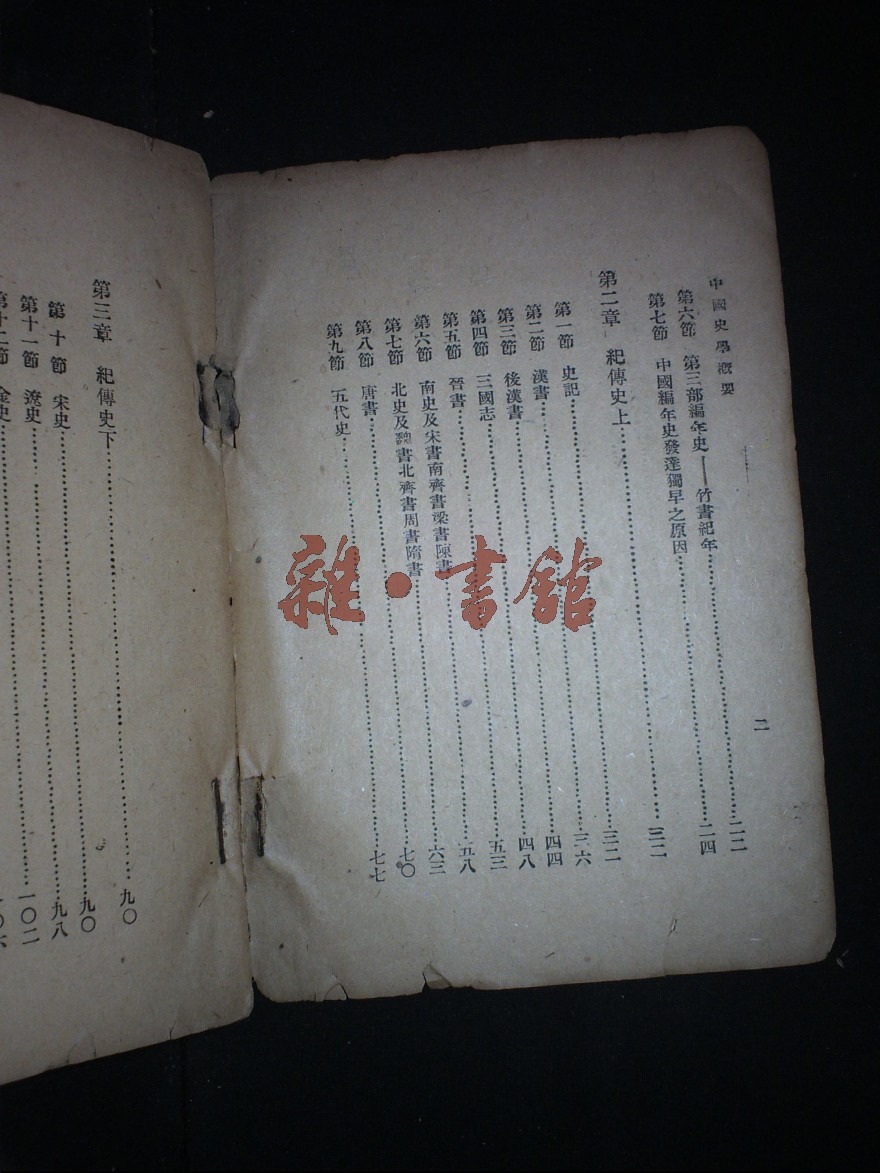 中國史學概要
二
第六節 第三部編年史——竹書紀年……二二
第七節 中國編年史發達獨早之原因……二四
第二章 紀傳史上……三二
第一節 史記……三二
第二節 漢書……三六
第三節 後漢書……四四
第四節 三國志……四八
第五節 晉書……五三
第六節 南史及宋書南齊書梁書陳書……五八
第七節 北史及魏書北齊書周書隋書……六三
第八節 唐書……七〇
第九節 五代史……七七
第三章 紀傳史下……九〇
第十節 宋史……九〇
第十一節 遼史……九八
第十二節 金史……一〇二
一〇六
雜·書館